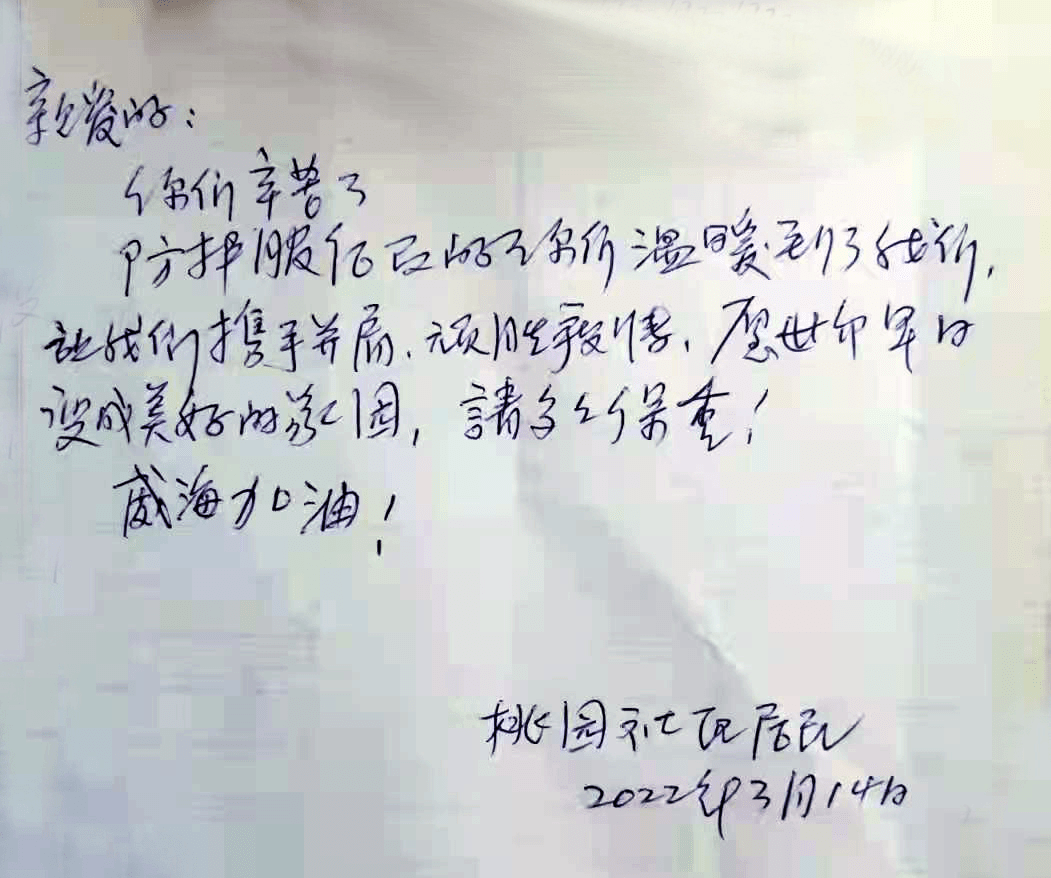 亲爱的：
你们辛苦了
防护服包裹的是你们温暖到了我们，
让我们携手并肩、顽胜疫情、愿世界早日
设成美好的家园，請多多保重！
威海加油！
桃园社区居民
2022年3月14日